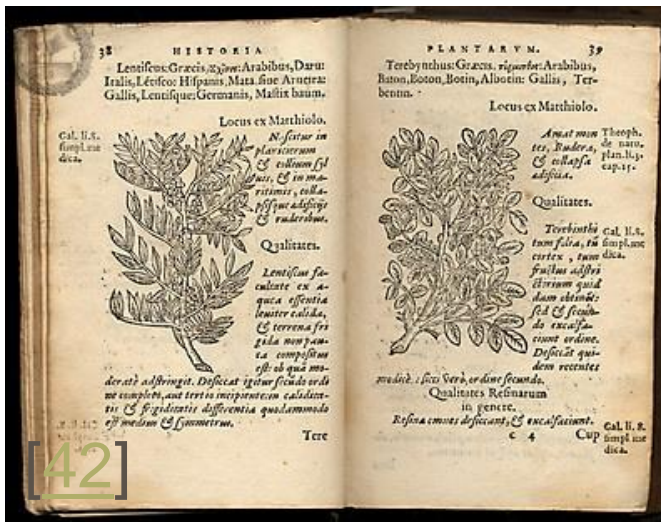 38
HISTORIA
Lentiscus: Græcis, Arabibus, Daru:
Italis, Létisco: Hispanis, Mata siue Arueira:
Gallis, Lentisque: Germanis, Mastix baum.
Locus ex Matthiolo.
Nascitur in
planicierum
& collium syl
uis, & in ma-
ritimis, colla-
psisque ædificijs
& ruderibus.
Gal. li. 8.
simpl. me
dica.
Qualitates.
Lentiscus fa-
cultate ex a-
quea essentia
leuiter calida,
& terrena fri
gida non pau-
ca compositus
est: ob quã mo-
deratè adstringit. Desiccat igitur secũdo ordi
ne completo, aut tertio incipiente: in calidita-
tis & frigiditatis differentia quodammodo
est medium & symmetrus.
Tere
[42]
PLANTARVM.
39
Terebynthus: Græcis. Arabibus,
Baton, Boton, Botin, Albotin: Gallis, Ter-
bentin.
Locus ex Matthiolo.
Amat mon
tes, Rudera,
& collapsa
ædificia.
Theoph.
de natu.
plan. li. 3.
cap. 15.
Qualitates.
Terebinthi
tum folia, tũ
cortex, tum
fructus adstri
ctorium quid
dam obtinẽt:
sed & secũn-
do excalfa-
ciunt ordine.
Desiccãt qui-
dem recentes
modicè: sicci verò, ordine secundo.
Gal. li. 8.
simpl. me
dica.
Qualitates Resinarum
in genere.
Resinæ omnes desiccant, & excalfaciunt.
c 4
Cup
Gal. li. 8.
simpl. me
dica.